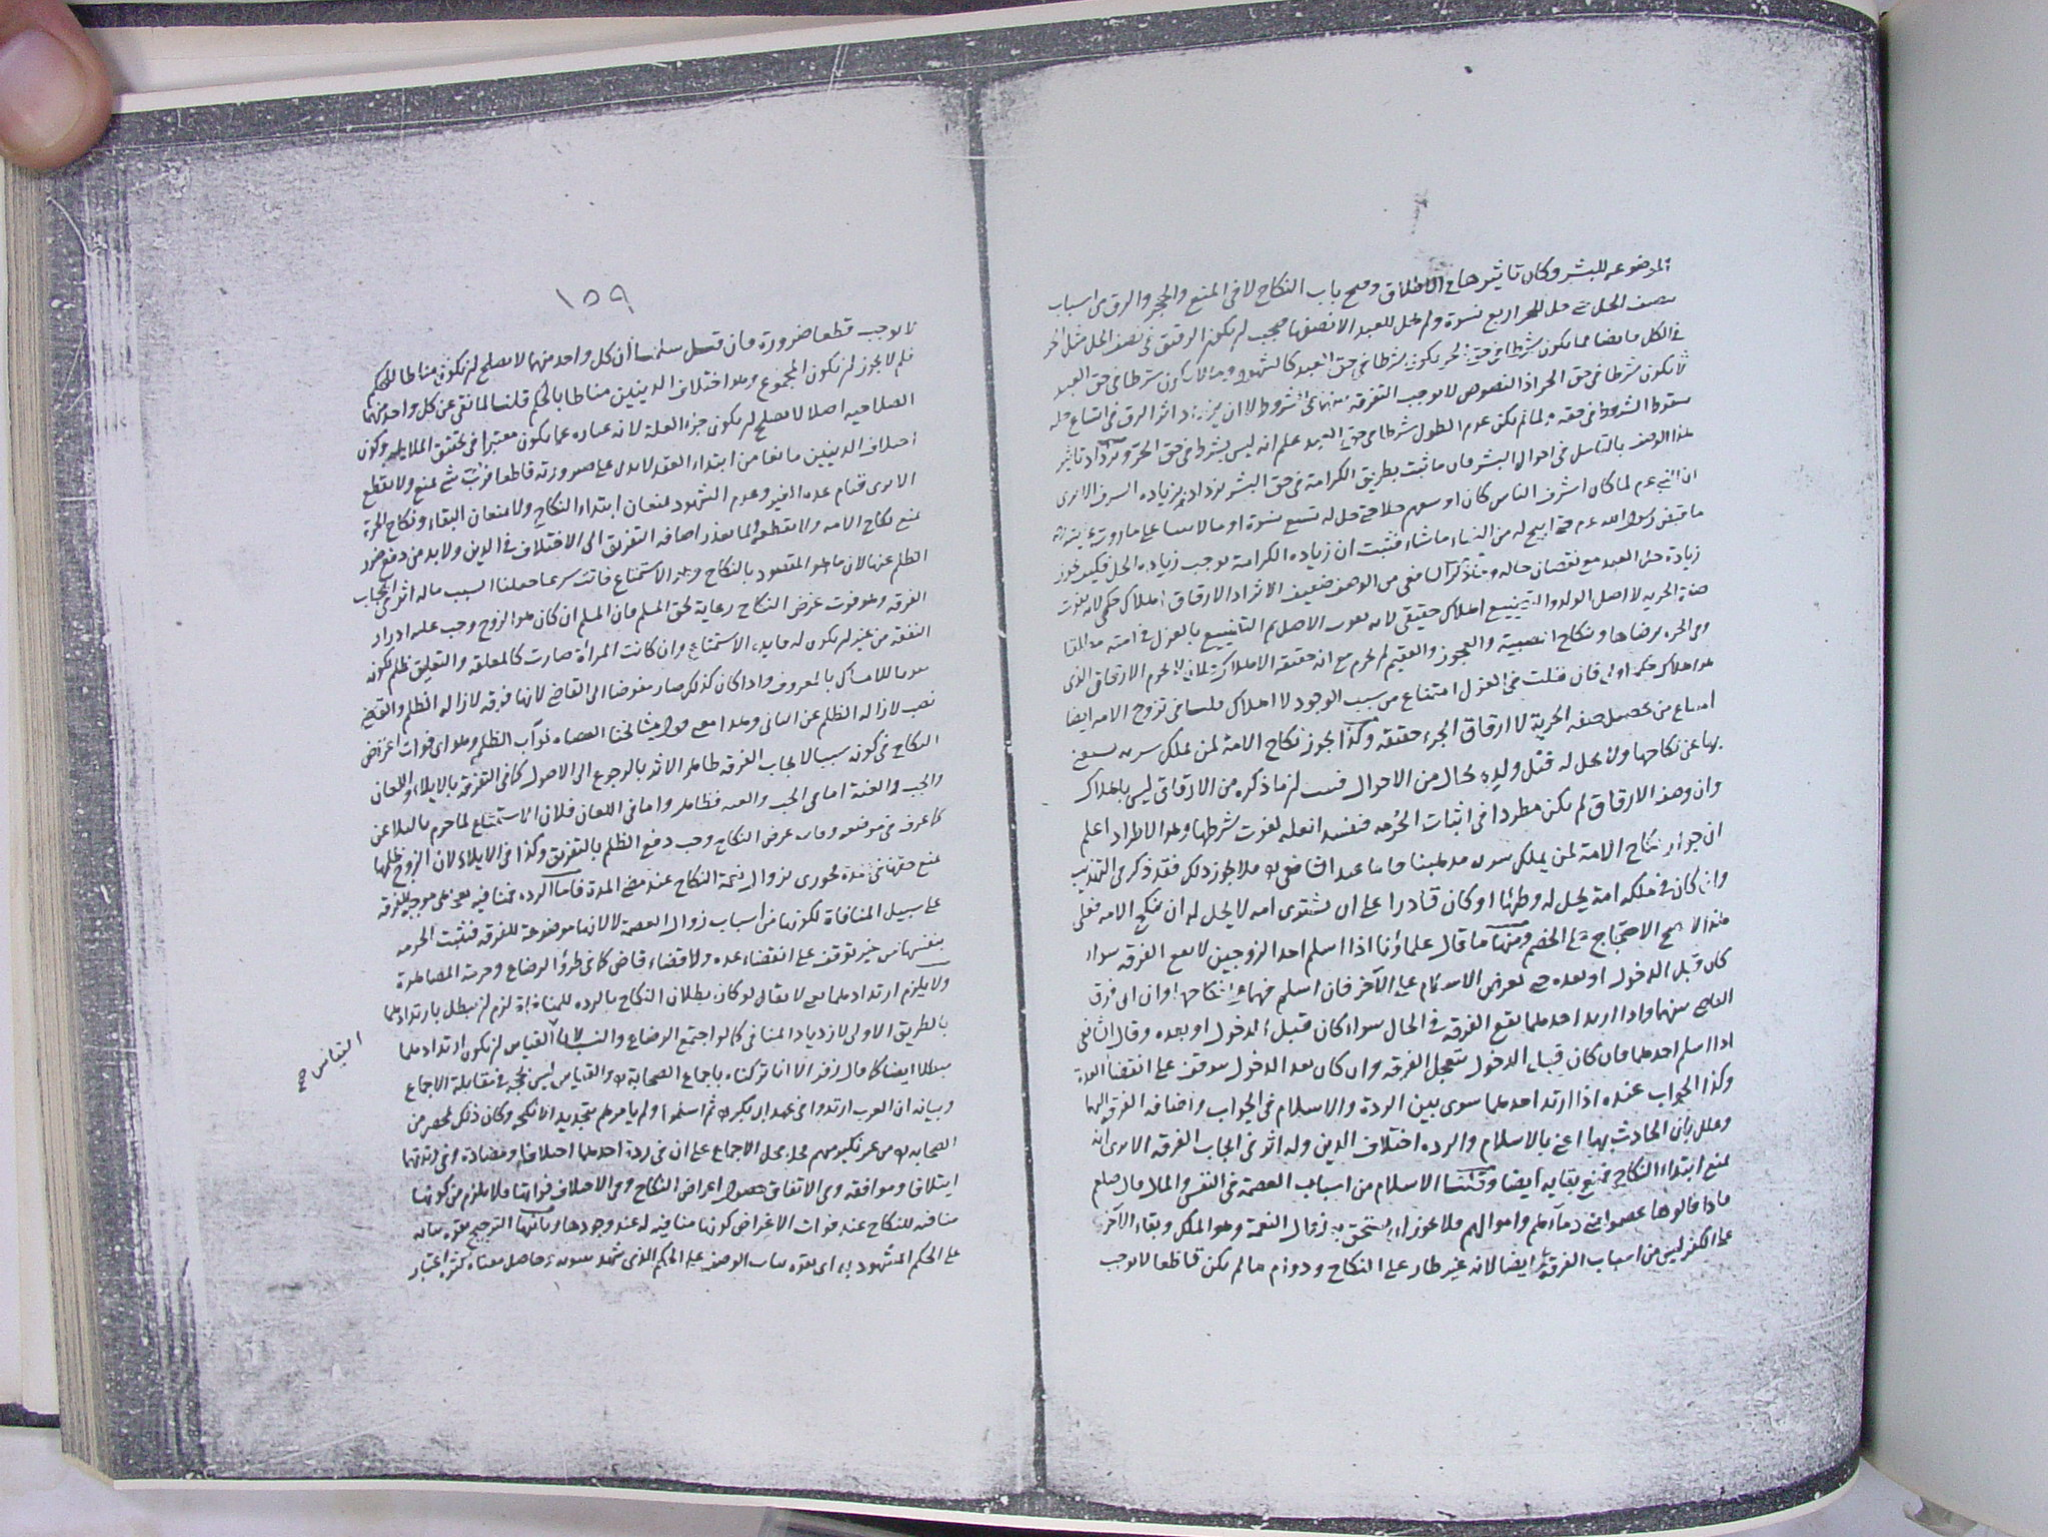 الموضوعة للبشر وكان تاثيرها في الاطلاق وفتح باب النكاح لا في المنع والحجر والرق من اسباب
تنصف الحل حتى حل للحر اربع نسوة ولم يحل للعبد الا نصفها فيجب ان يكون الرقيق في نصف الحل مثل الحر
في الكل وايضا مما يكون شرطا في حق الحر يكون شرطا في حق العبد كالشهود وما لا يكون شرطا في حق العبد
لا يكون شرطا في حق الحر اذ النصوص لا توجب التفرقة بينهما في الشروط الا ان يزداد اثر الرق في اتساع
سقوط الشروط في حقه ولما لم يكن عدم الطول شرطا في حق العبد علم انه ليس بشرط في حق الحر وتزداد تاثير
هذا الوصف بالتامل في احوال البشر فان ما ثبت بطريق الكرامة في حق البشر يزداد بزيادة الشرف الا ترى
ان النبي عم لما كان اشرف الناس كان اوسعهم حلا حتى حل له تسع نسوة او ما لا يتناهى على ما روت عايشة
ما قبض رسول الله عم حتى ابيح له من النساء ما شاء فثبت ان زيادة الكرامة توجب زيادة الحل فكيف يجوز
زيادة حل العبد مع نقصان حاله وما ذكر الشافعي من الوصف ضعيف الاثر اذ الارقاق اهلاك حكمي لانه يفوت
صفة الحرية لا اصل الولد والتضييع اهلاك حقيقي لانه يفوت الاصل ثم التضييع بالعزل في امته
ومن الحرة برضاها ونكاح الصبية والعجوز والعقيم لم يحرم مع انه حقيقة الاهلاك فلان لا يحرم الارقاق الذي
هو اهلاك حكما اولى فان قلت في العزل امتناع من سبب الوجود لا اهلاك قلنا في تزوج الامة ايضا
امتناع من تحصيل صفة الحرية لا ارقاق الجزء حقيقة وكذا يجوز نكاح الامة لمن يملك سرية يستغني
بها عن نكاحها ولا يحل له قتل ولده بحال من الاحوال فثبت ان ما ذكره من الارقاق ليس باهلاك
وان وصف الارقاق لم يكن مطردا في اثبات الحرمة فتفسد العلة لفوت شرطها وهو الاطراد اعلم
ان جواز نكاح الامة لمن يملك سرية مذهبنا واما عند الشافعي فلا يجوز ذلك فقد ذكر في التهذيب
وان كان في ملكه امة يحل له وطئها او كان قادرا على ان يشتري امة لا يحل له ان ينكح الامة فعلى
هذا لا يصح الاحتجاج على الخصم ومنها ما قال علماؤنا اذا اسلم احد الزوجين لا تقع الفرقة سواء
كان قبل الدخول او بعده حتى يعرض الاسلام على الآخر فان اسلم فهما على نكاحهما وان ابى فرق
القاضي بينهما واذا ارتد احدهما تقع الفرقة في الحال سواء كان قبل الدخول او بعده وقال الشافعي
اذا اسلم احدهما فان كان قبل الدخول تتعجل الفرقة وان كان بعد الدخول يتوقف على انقضاء العدة
وكذا الجواب عنده اذا ارتد احدهما سوى بين الردة والاسلام في الجواب واضافة الفرقة اليهما
وعلل بان الحادث بهما اعني بالاسلام والردة اختلاف الدين وله اثر في ايجاب الفرقة الا ترى انه
يمنع ابتداء النكاح فيمنع بقاءه ايضا وقلنا الاسلام من اسباب العصمة في النفس والمال قال صلعم
فاذا قالوها عصموا مني دماءهم واموالهم فلا يجوز ان يستحق به زوال النعمة وهو الملك وبقاء الآخر
على الكفر ليس من اسباب الفرقة ايضا لانه غير طار على النكاح ودوام ما لم يكن قاطعا لا يوجب
١٥٩
لا يوجب قطعا ضرورة فان قيل سلمنا ان كل واحد منهما لا يصلح ان يكون مناطا للحكم
فلم لا يجوز ان يكون المجموع وهو اختلاف الدينين مناطا بالحكم قلنا لما نفى عن كل واحد منهما
الصلاحية اصلا لا يصلح ان يكون جزء العلة لانه عبارة عما يكون معتبرا في تحقق الملايمة وكون
اختلاف الدينين مانعا من ابتداء العقد لا يدل على صيرورته قاطعا فرب شي يمنع ولا يقطع
الا ترى قيام عدة الغير وعدم الشهود يمنعان ابتداء النكاح ولا يمنعان البقاء ونكاح الحرة
يمنع نكاح الامة ولا يقطعه ولما تعذر اضافة التفريق الى الاختلاف في الدين ولا بد من دفع ضرر
الظلم عنها لان ما هو المقصود بالنكاح وهو الاستمتاع فائت شرعا جعلنا السبب ما له اثر في ايجاب
الفرقة وهو فوت غرض النكاح رعاية لحق المسلم فان المسلم ان كان هو الزوج وجب عليه ادرار
النفقة من غير ان يكون له فايدة الاستمتاع وان كانت المرأة صارت كالمعلقة والتعليق ظلم لكونه
تفويتا للامساك بالمعروف واذا كان كذلك صار مفوضا الى القاضي لانها فرقة لازالة الظلم والقاضي
نصب لازالة الظلم عن الناس وهذا معنى قول مشايخنا القضاء نواب الظلم وهو اي فوات غرض
النكاح في كونه سببا لايجاب الفرقة ظاهر الاثر بالرجوع الى الاصول كما في التفرقة بالايلاء واللعان
والجب والعنة اما في الجب والعنة فظاهر واما في اللعان فلان الاستمتاع لما حرم بالتلاعن
كما عرف في موضعه وفات غرض النكاح وجب دفع الظلم بالتفريق وكذا في الايلاء لان الزوج ظلمها
بمنع حقها في مدة فجوزي بزوال نعمة النكاح عند مضي المدة فاما الردة فمنافية فهي موجبة للفرقة
على سبيل المنافاة لكونها من اسباب زوال العصمة لا لانها موضوعة للفرقة فتثبت الحرمة
بنفسها من غير توقف على انقضاء عدة ولا قضاء قاض كما في طروء الرضاع وحرمة المصاهرة
ولا يلزم ارتدادهما معا لا يقال لو كان بطلان النكاح بالردة للمنافاة لزم ان يبطل بارتدادهما
بالطريق الاولى لازدياد المنافي كما لو اجتمع الرضاع والنسب لانا القياس ان يكون ارتدادهما
مبطلا ايضا كما قال زفر الا انا تركناه باجماع الصحابة والقياس ليس بحجة في مقابلة الاجماع
وبيانه ان العرب ارتدوا في عهد ابي بكر ثم اسلموا ولم يامرهم بتجديد الانكحة وكان ذلك بمحضر من
الصحابة من غير نكير منهم فحل محل الاجماع على ان في ردة احدهما اختلافا ومضادة وفي ردتهما
ايتلافا وموافقة وفي الاتفاق حصول اغراض النكاح وفي الاختلاف فواتها فلا يلزم من كونها
منافية للنكاح عند فوات الاغراض كونها منافية له عند وجودها وثانيها الترجيح بقوة ثباته
على الحكم المشهود به اي بقوة ثبات الوصف على الحكم الذي شهد بثبوته وحاصل معناه كثرة اعتبار
القياس صح